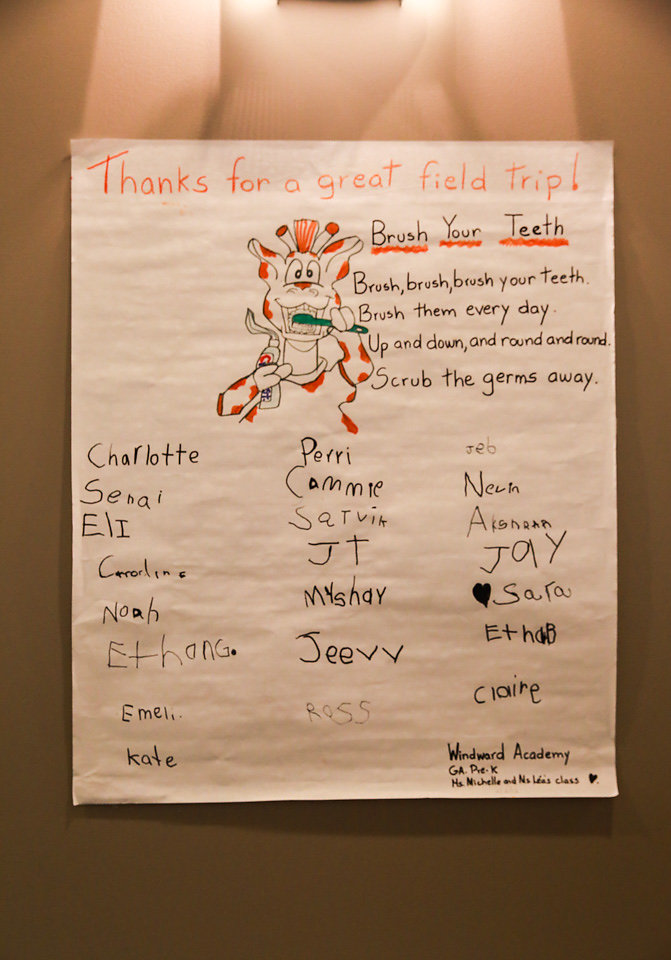 Thanks for a great field trip!
Brush Your Teeth
Brush, brush, brush your teeth.
Brush them every day.
Up and down, and round and round.
Scrub the germs away.
Charlotte
Senai
ElI
Caroline
Noah
Ethan G.
Emeli.
Kate
Perri
Cammie
Sarvik
JT
Myshay
Jeevv
Ross
Jeb
Nevin
JAY
Sara
Ethan B
Claire
Windward Academy
GA. Pre-K
Ms. Michelle and Ms. Lea's class